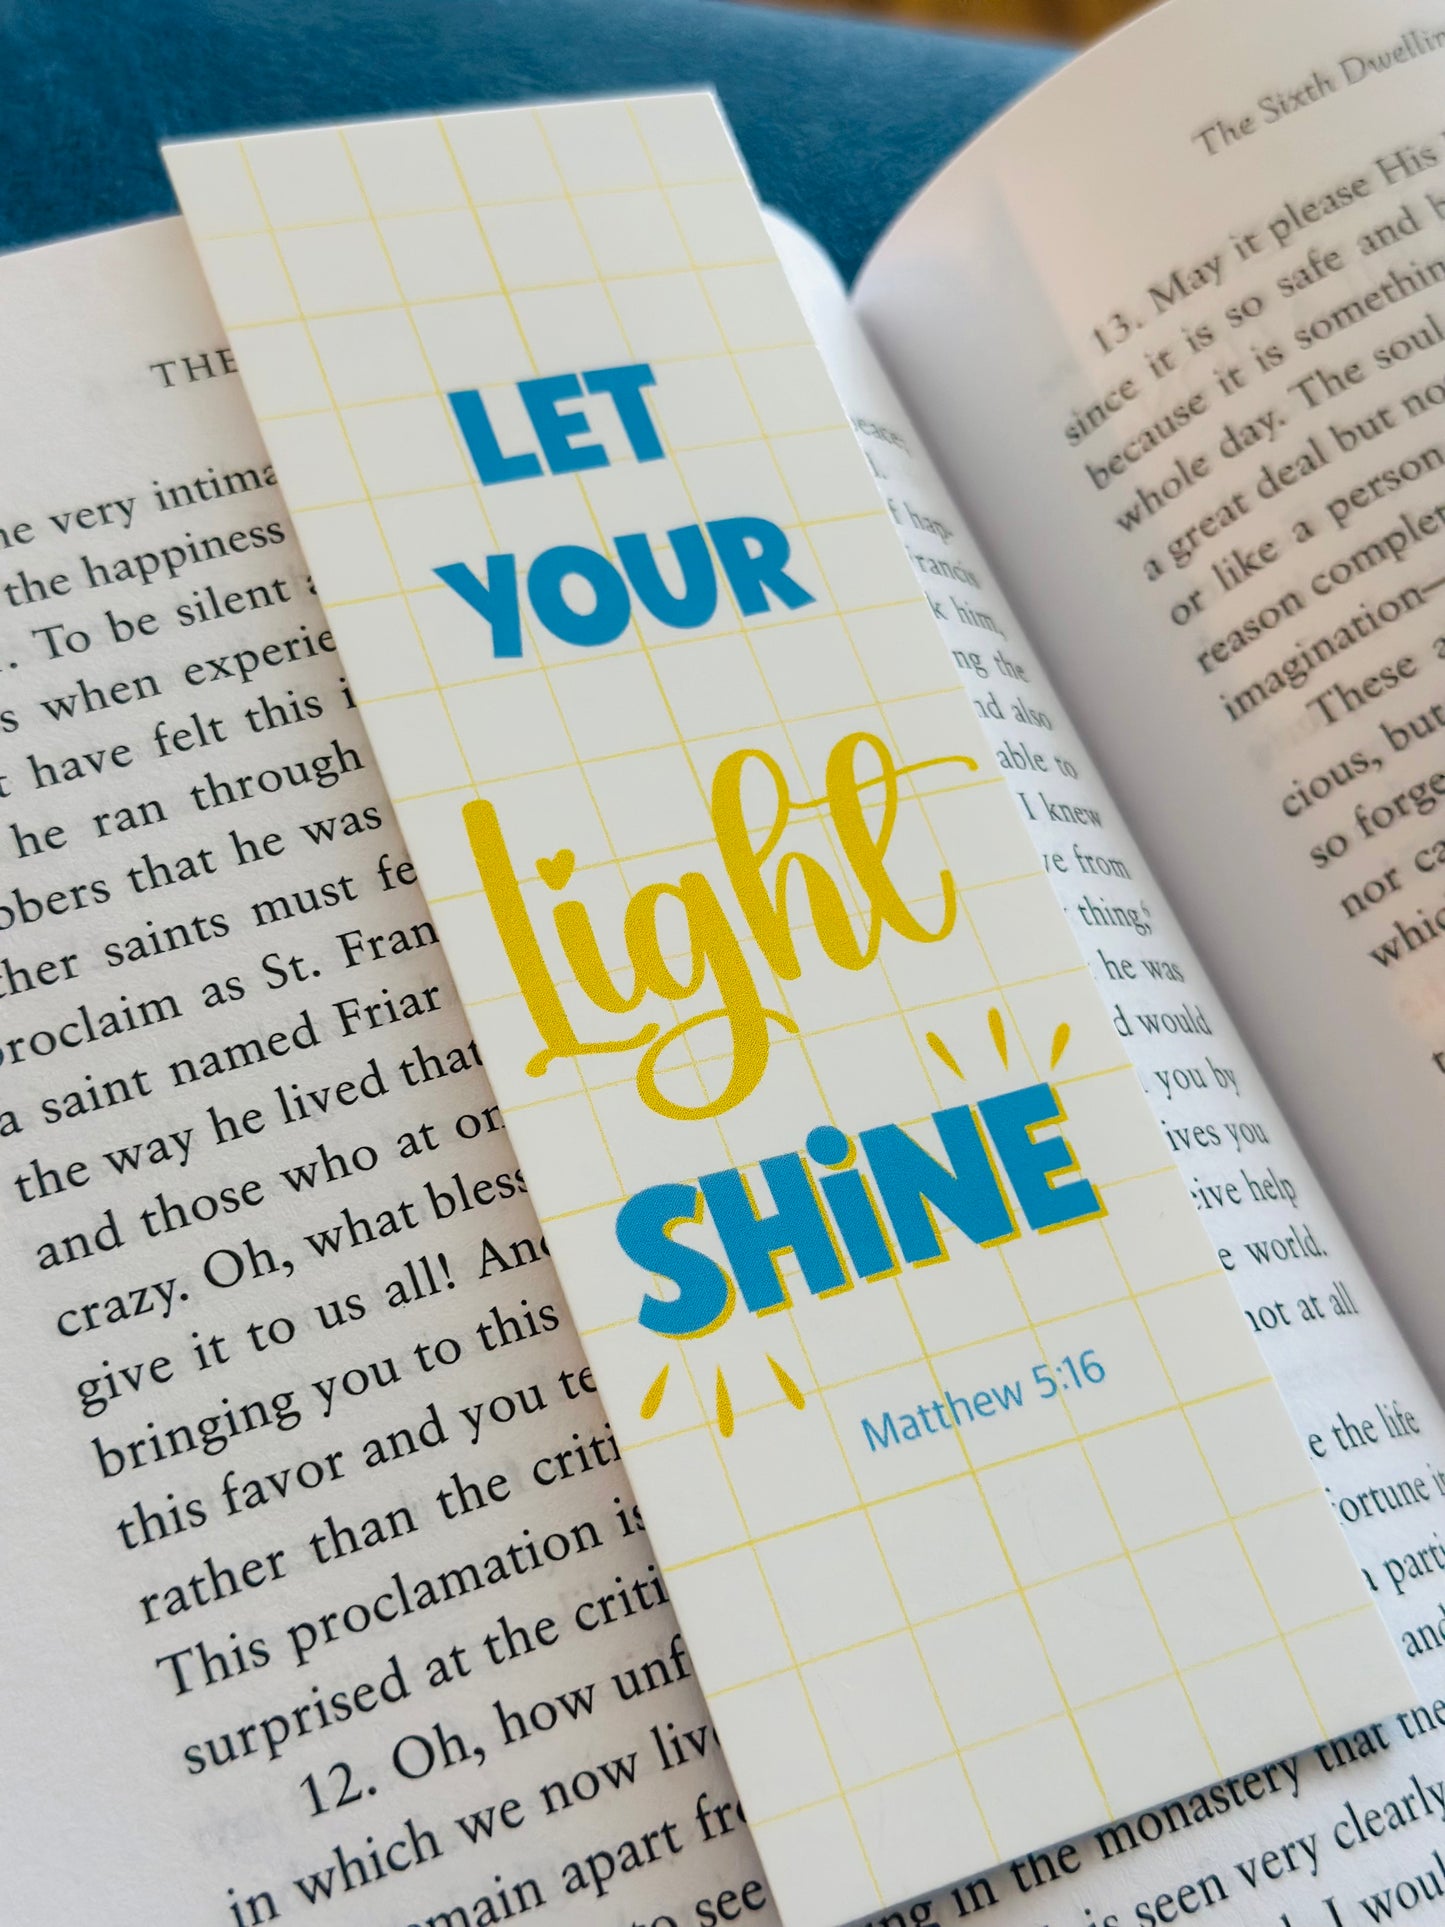 LET
YOUR
Light
SHiNE
Matthew 5:16
THE
very intima
the happiness
To be silent
s when experie
have felt this i
he ran through
bbers that he was
her saints must fe
proclaim as St. Fran
a saint named Friar
the way he lived that
and those who at on
crazy. Oh, what bless
give it to us all! And
bringing you to this
this favor and you te
rather than the criti
This proclamation is
surprised at the criti
12. Oh, how unf
in which we now live
main apart fro
to see
peace;
f hap-
rancis
k him,
ng the
nd also
able to
I knew
ve from
thing,6
he was
d would
you by
ives you
eive help
e world.
not at all
e the life
fortune it
a parti
and
in the monastery that the
is seen very clearly
I woul
The Sixth Dwellin
13. May it please His
since it is so safe and
because it is something
whole day. The soul
a great deal but no
or like a person
reason complet
imagination—
These a
cious, but
so forge
nor ca
whic